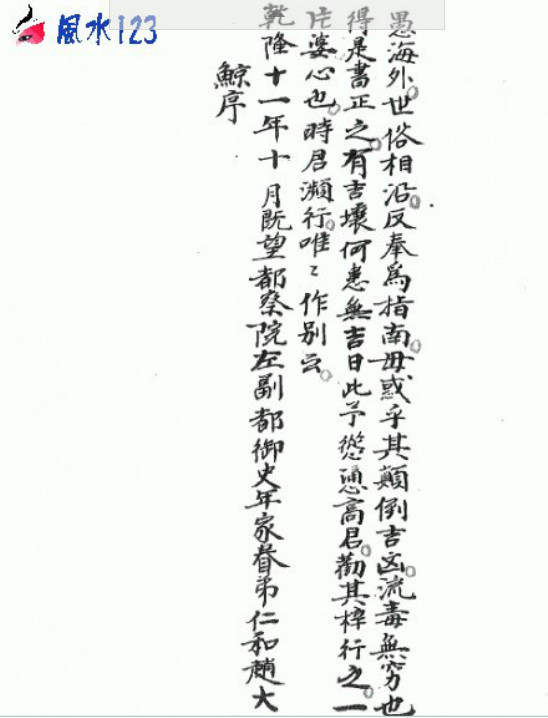 風水123
愚海外世俗相沿反奉爲指南毋或乎其顛倒吉凶流毒無窮也
得是書正之有吉壤何患無吉日此予慫慂高君勸其梓行之一
片婆心也時君瀕行唯〻作别云
乾隆十一年十月既望都察院左副都御史年家眷弟仁和趙大
鯨序